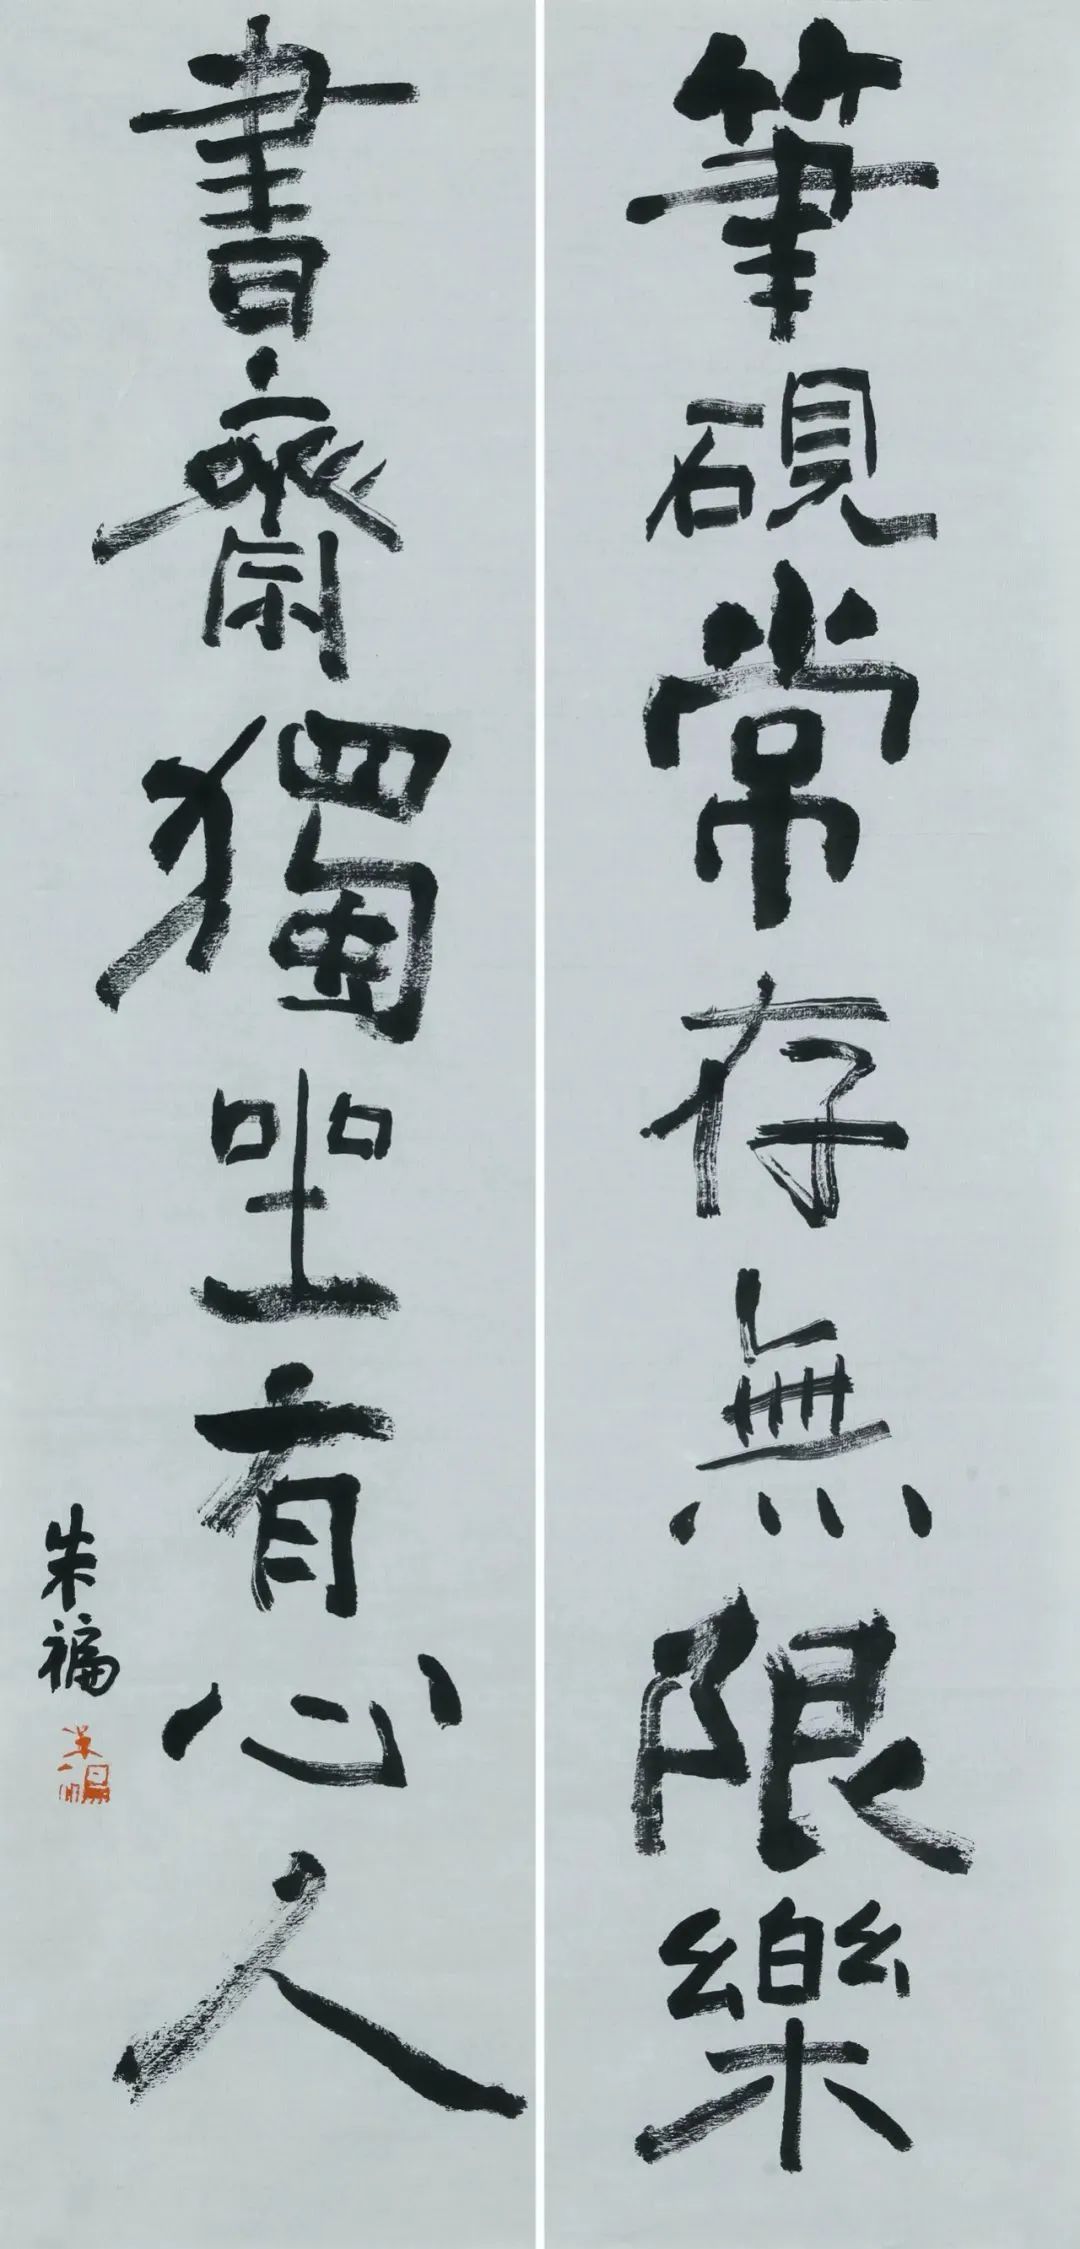 筆硯常存無限樂
書齋獨坐有心人
朱褔